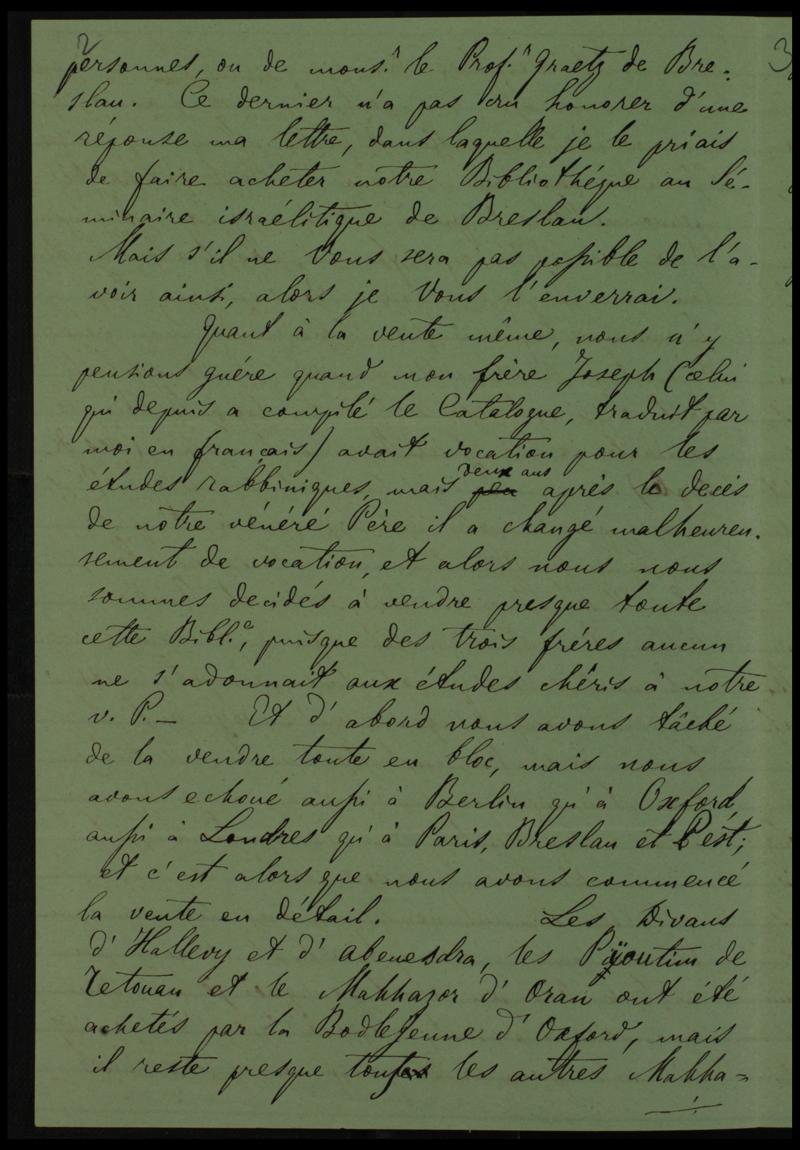 2
3
personnes, ou de mons.r le Prof.r Graetz de Bre-
slau. Ce dernier n'a pas cru honorer d'une
réponse ma lettre, dans laquelle je le priais
de faire acheter notre Bibliothéque au Sé-
minaire israélitique de Breslau.
Mais s'il ne Vous sera pas possible de l'a-
voir ainsi, alors je Vous l'enverrai.
Quant à la vente même, nous n'y
pensions guére quand mon frère Joseph (celui
qui depuis a compilé le Catalogue, traduit par
moi en français) avait vocation pour les
études rabbiniques, mais peu deux ans aprés le decés
de notre vénéré Père il a changé malheureu-
sement de vocation, et alors nous nous
sommes decidés à vendre presque toute
cette Bibl.e, puisque des trois fréres aucun
ne s'adonnait aux études chéris à notre
v. P. — Et d'abord nous avons tâché
de la vendre toute en bloc, mais nous
avons echoué aussi à Berlin qu'à Oxford,
aussi à Londres qu'à Paris, Breslau et Pest;
et c'est alors que nous avons commencé
la vente en détail. Les Divans
d'Hallevy et d'Abenesdra, les Pijoutim de
Tetouan et le Mahhazor d'Oran ont été
achetés par la Bodlejenne d'Oxford, mais
il reste presque tous les autres Mahha=